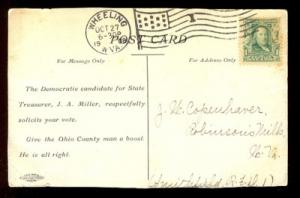 WHEELING
OCT 27
6-PM
W.VA.
1
POST CARD
For Message Only
For Address Only
The Democratic candidate for State
Treasurer, J. A. Miller, respectfully
solicits your vote.
Give the Ohio County man a boost.
He is all right.
J. H. Copenhaver,
Robinson's Mills,
W. Va.
(Smithfield R.F.D. 1)